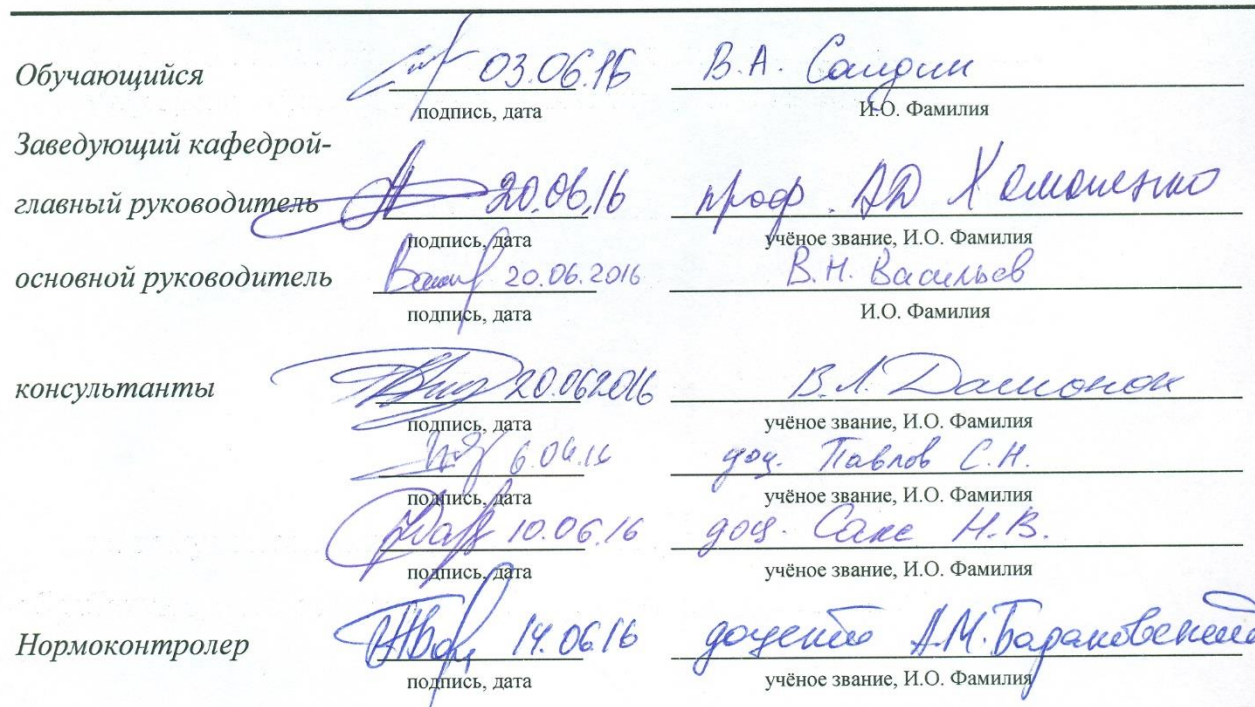 Обучающийся 03.06.16 В.А. Саидин
подпись, дата И.О. Фамилия
Заведующий кафедрой-
главный руководитель 20.06.16 проф. АД Хомоненко
подпись, дата учёное звание, И.О. Фамилия
основной руководитель 20.06.2016 В.Н. Васильев
подпись, дата И.О. Фамилия
консультанты 20.062016 В.Л.
подпись, дата учёное звание, И.О. Фамилия
доц. Павлов С.Н.
подпись, дата учёное звание, И.О. Фамилия
10.06.16 доц. Сакс Н.В.
подпись, дата учёное звание, И.О. Фамилия
Нормоконтролер 14.06.16 доцент А.М. Барановский
подпись, дата учёное звание, И.О. Фамилия